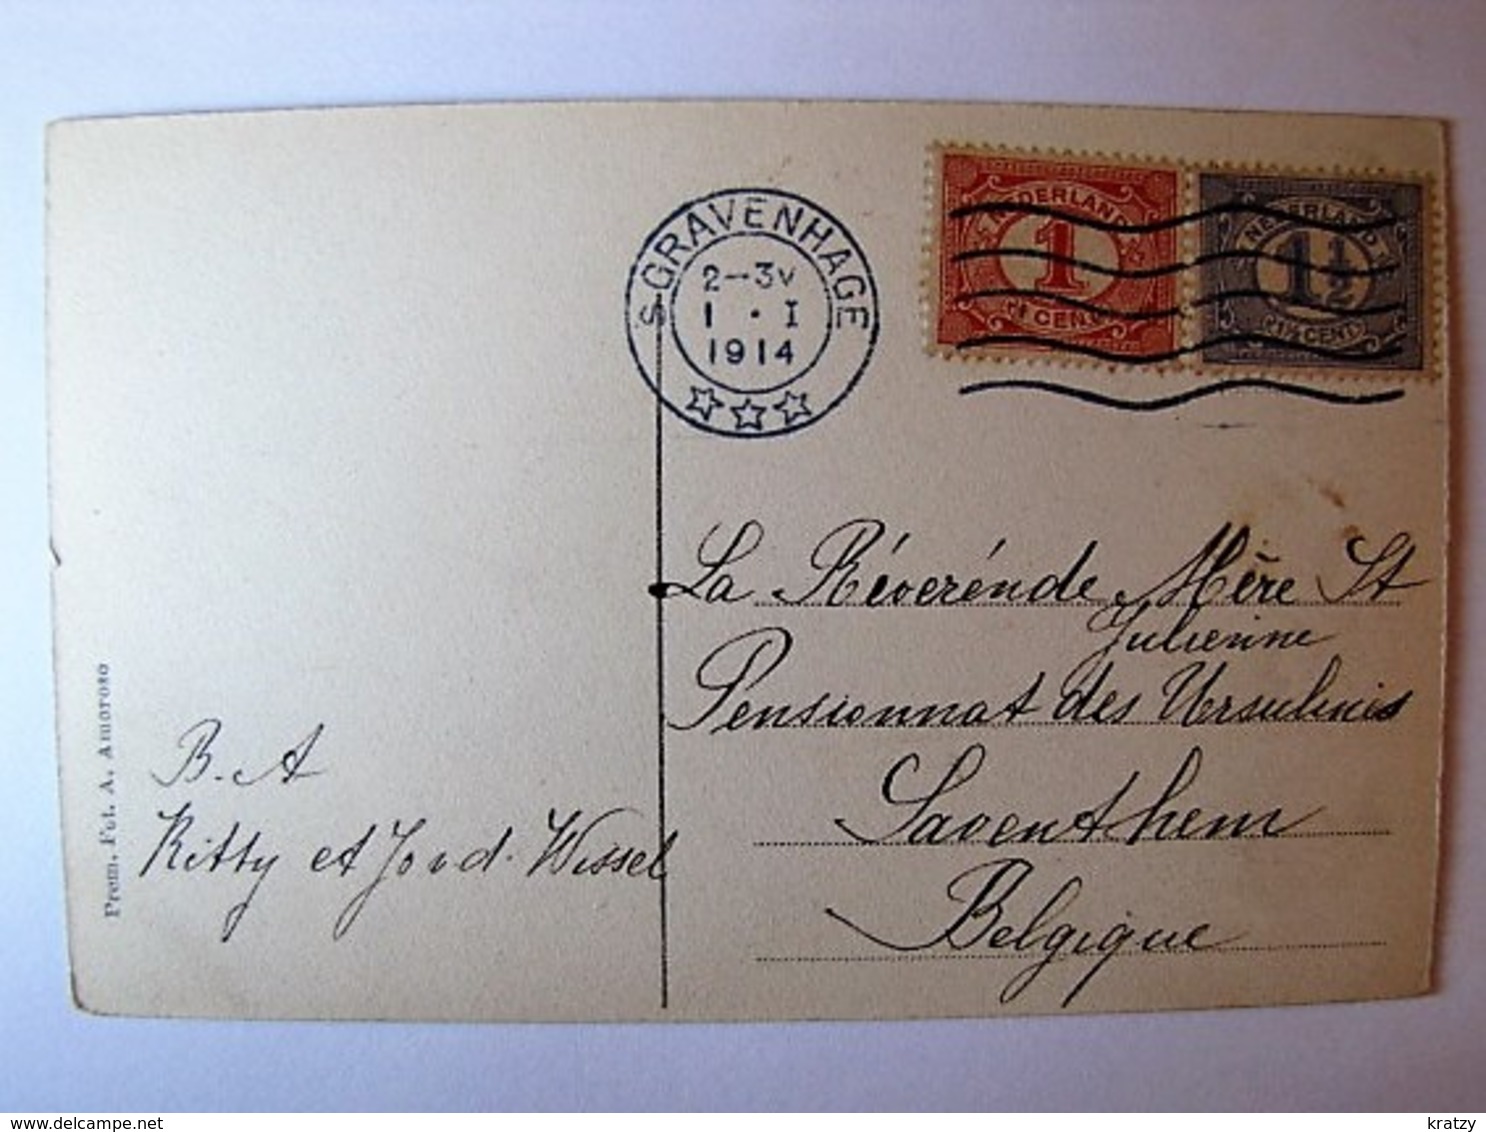 'SGRAVENHAGE
2–3V
1 · I
1914
NEDERLAND
1
1 CENT
NEDERLAND
1½
1½ CENT
La Révérénde Mère St
Julienne
Pensionnat des Ursulinis
Saventhem
Belgique
B. A
Kitty et Jord. Wissel
Prem. Fot. A. Amoroso
delcampe.net
kratzy